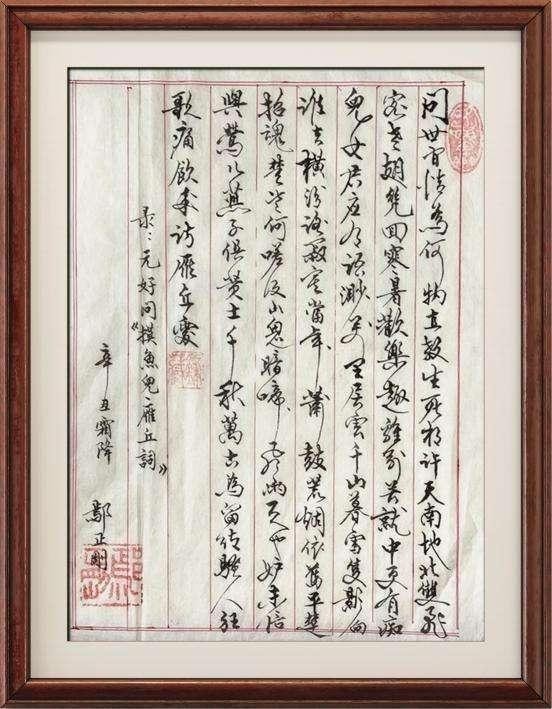 問世间情為何物直教生死相许天南地北雙飛
客老翅幾回寒暑歡樂趣離别苦就中更有痴
兒女君应有语渺万里层雲千山暮雪隻影向
谁去横汾路寂寞當年箫鼓荒烟依旧平楚
招魂楚些何嗟及山鬼暗啼风雨天也妒未信
與莺儿燕子俱黄土千秋萬古為留待騷人狂
歌痛飲来访雁丘處
录:元好问《摸魚兒雁丘詞》
辛丑霜降 鄢正剛